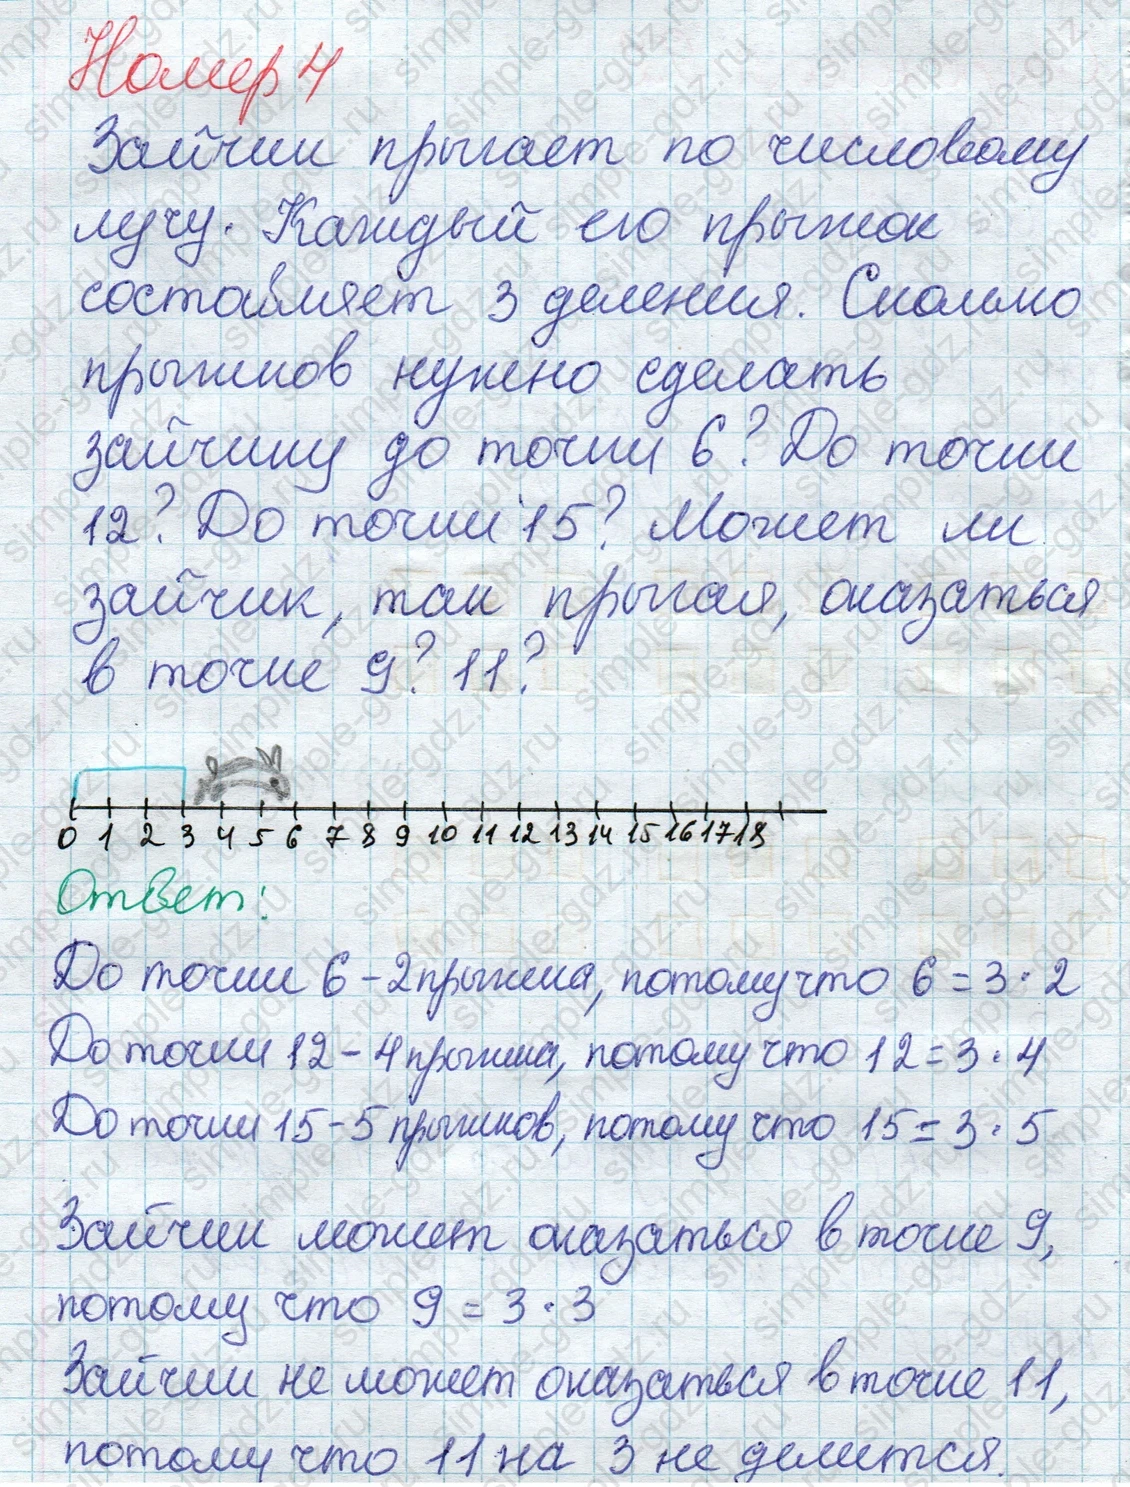 Номер 4
Зайчик прыгает по числовому
лучу. Каждый его прыжок
составляет 3 деления. Сколько
прыжков нужно сделать
зайчику до точки 6? До точки
12? До точки 15? Может ли
зайчик, так прыгая, оказаться
в точке 9? 11?
0 1 2 3 4 5 6 7 8 9 10 11 12 13 14 15 16 17 18
Ответ:
До точки 6 - 2 прыжка, потому что 6 = 3 · 2
До точки 12 - 4 прыжка, потому что 12 = 3 · 4
До точки 15 - 5 прыжков, потому что 15 = 3 · 5
Зайчик может оказаться в точке 9,
потому что 9 = 3 · 3
Зайчик не может оказаться в точке 11,
потому что 11 на 3 не делится.
simple-gdz.ru